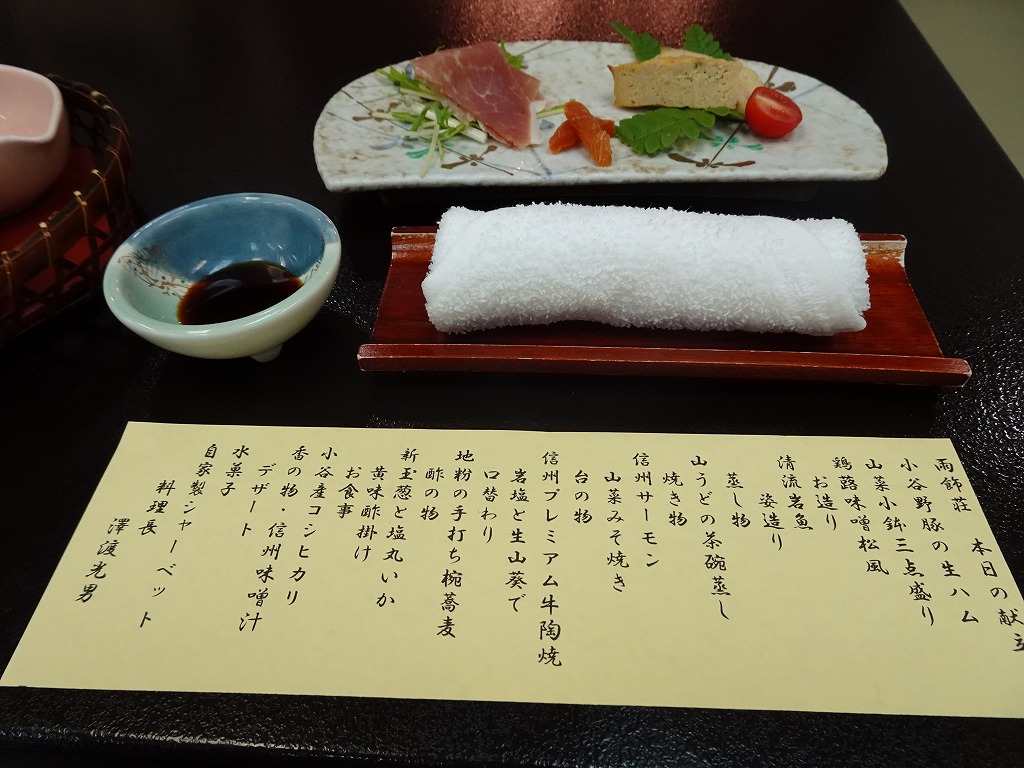 雨飾荘　本日の献立
小谷野豚の生ハム
山菜小鉢三点盛り
鶏蕗味噌松風
お造り
姿造り
清流岩魚
蒸し物
山うどの茶碗蒸し
焼き物
信州サーモン
山菜みそ焼き
台の物
信州プレミアム牛陶焼
岩塩と生山葵で
口替わり
地粉の手打ち椀蕎麦
酢の物
新玉葱と塩丸いか
黄味酢掛け
お食事
小谷産コシヒカリ
香の物・信州味噌汁
デザート
水菓子
自家製シャーベット
料理長
澤渡光男